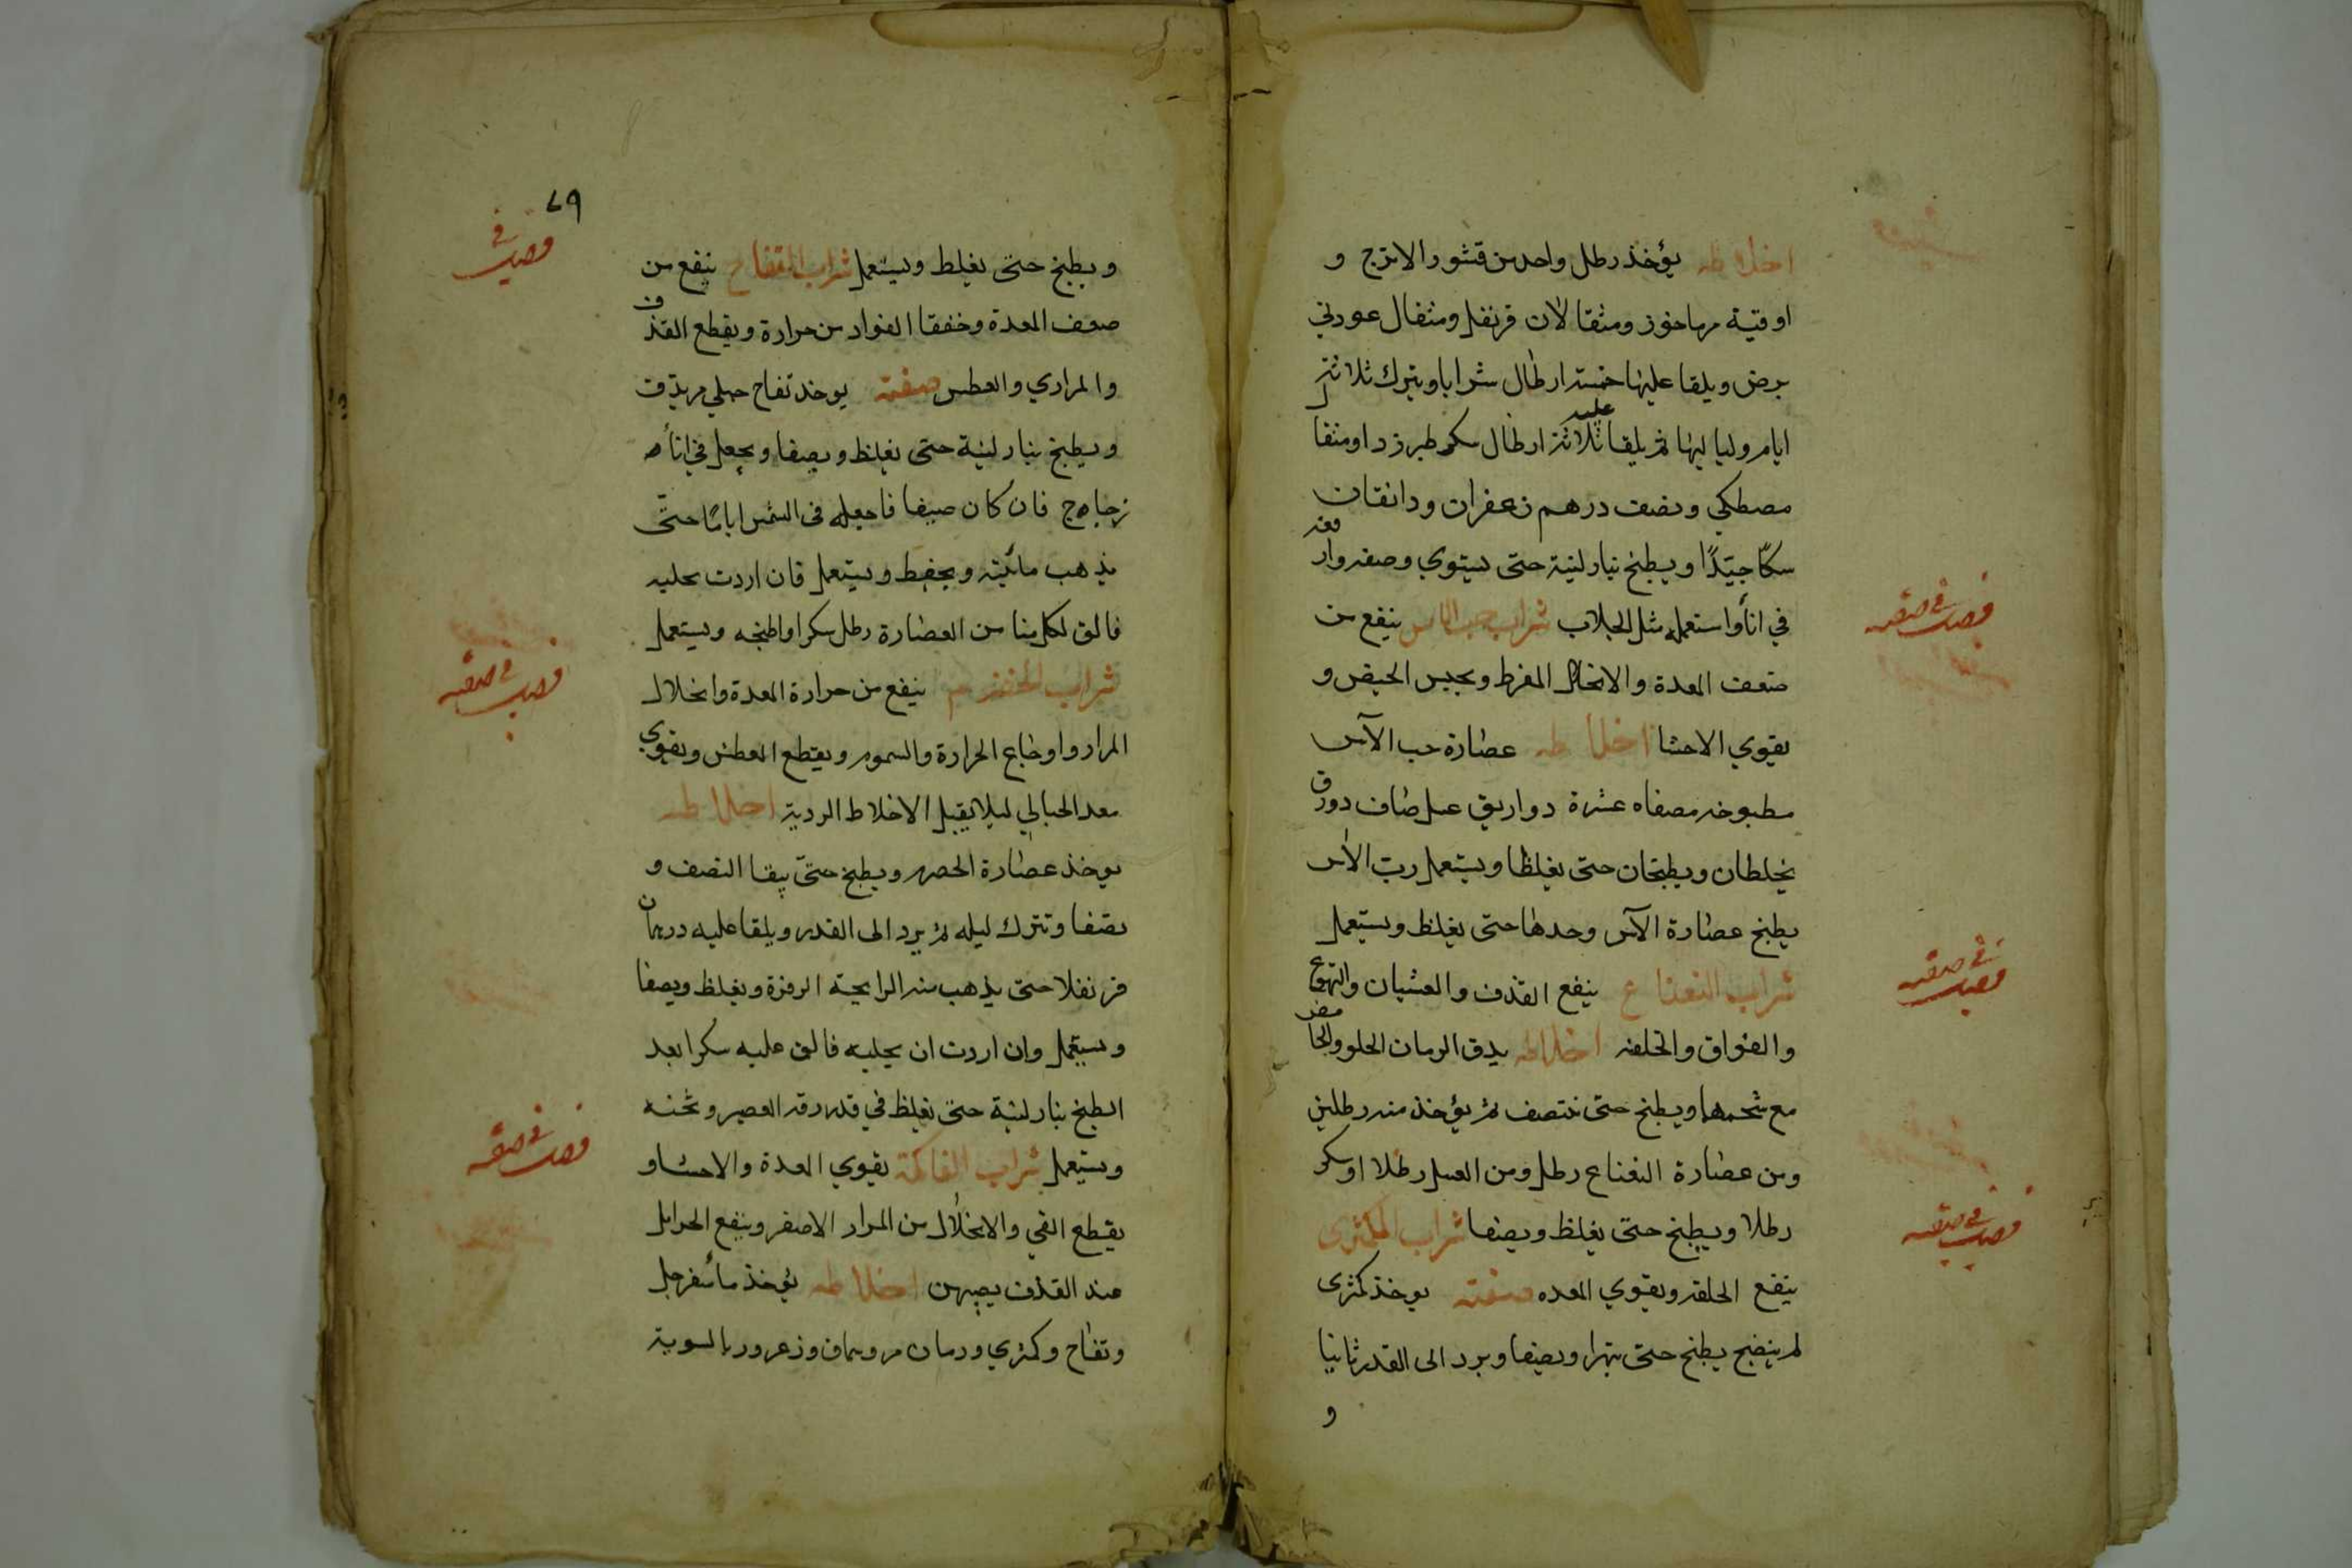 اخلاطه يؤخذ رطل واحد من قشور الاترج و
اوقية مرماحوز ومثقالان قرنفل ومثقال عود ني
يرض ويلقا عليها خمسة ارطال شرابا ويترك ثلاثة
ايام ولياليها ثم يلقا عليه ثلاثة ارطال سكر طبرزد او مثقا
مصطكي ونصف درهم زعفران ودانقان
سكّا جيّدًا ويطبخ بنار لينة حتى يستوي وصفه وارفعه
في انأ واستعمله مثل الجلاب شراب حب الاس ينفع من
ضعف المعدة والانحلال المفرط ويحبس الحيض و
يقوي الاحشا اخلاطه عصارة حب الآس
مطبوخه مصفاه عشرة دواريق عسل صاف دورق
يخلطان ويطبخان حتى يغلظا ويستعمل ربّ الاس
يطبخ عصارة الآس وحدها حتى يغلظ ويستعمل
شراب النعناع ينفع القذف والغثيان والتهوع
والفواق والخلفه اخلاطه يدق الرمان الحلو والحامض
مع شحمهما ويطبخ حتى ينتصف ثم يؤخذ منه رطلين
ومن عصارة النعناع رطل ومن العسل رطلا او سكر
رطلا ويطبخ حتى يغلظ ويصفا شراب الكمثرى
ينفع الخلفه ويقوي المعده صفته يوخذ كمثرى
لم ينضج يطبخ حتى يتهرا ويصفا ويرد الى القدر ثانيا
و
فصل في صفة
فصل في صفة
فصل في صفة
٧٩
ويطبخ حتى يغلظ ويستعمل شراب التفاح ينفع من
ضعف المعدة وخفقا الفواد من حرارة ويقطع القذف
والمراري والعطس صفته يوخذ تفاح جبلي مر يدق
ويطبخ بنار لينة حتى يغلظ ويصفا ويجعل في انأ
زجاج فان كان صيفا فاجعله في الشمس ايامًا حتى
يذهب مائيته ويحفظ ويستعمل فان اردت تحليه
فالق لكل منا من العصارة رطل سكرا واطبخه ويستعمل
شراب الحصرم ينفع من حرارة المعدة وانحلال
المرار واوجاع الحرارة والسموم ويقطع العطش ويقوي
معد الحبالي ليلا يقبل الاخلاط الردية اخلاطه
يوخذ عصارة الحصرم ويطبخ حتىّ يبقا النصف و
يصفا وتترك ليله ثم يرد الى القدر ويلقا عليه درهمان
قرنفلا حتى يذهب منه الرايحة الزفرة ويغلظ ويصفا
ويستعمل وان اردت ان يحليه فالق عليه سكرا بعد
الطبخ بنار لينة حتى يغلظ في قدر رقه العصير وثخنه
ويستعمل شراب الفاكهة يقوي المعدة والاحشا و
يقطع القي والانحلال من المرار الاصفر وينفع الحوامل
عند القذف يصيبهن اخلاطه يؤخذ مأ سفرجل
وتفاح وكمثري ورمان مر وسماق وزعرور بالسوية
فصل في
فصل في صفة
فصل في صفة